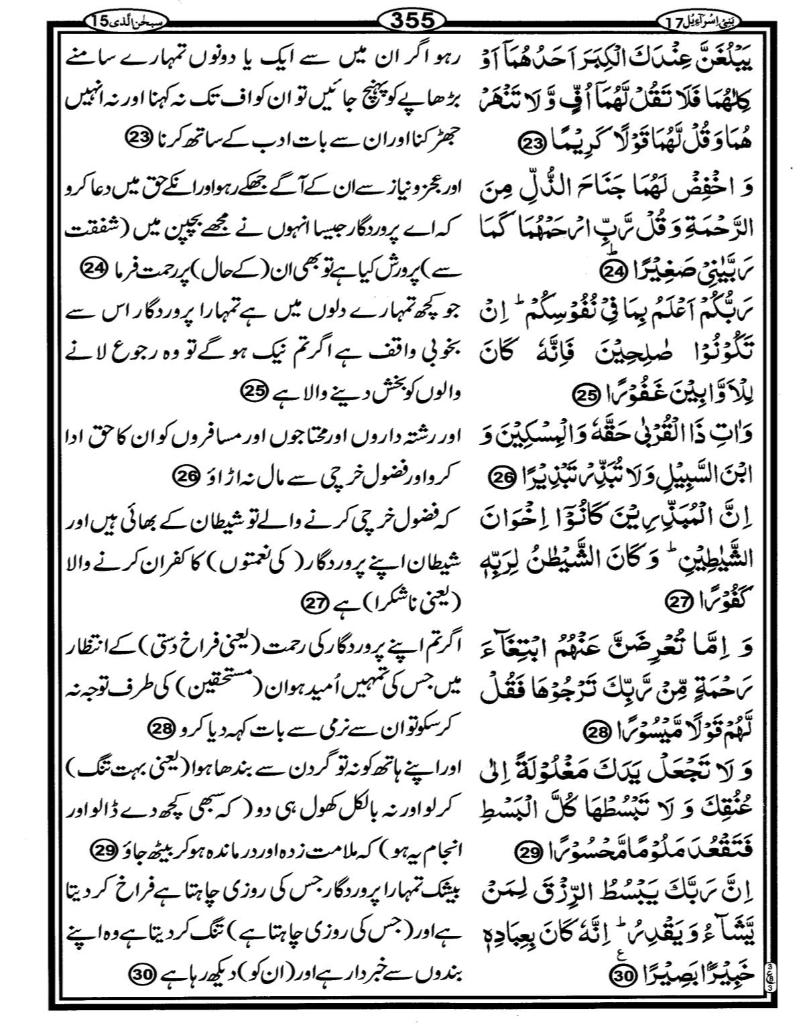 بنیٓ اسرآءیل 17
355
سبحٰن الذی 15
یَبْلُغَنَّ عِنْدَكَ الْكِبَرَ اَحَدُهُمَاۤ اَوْ
كِلٰهُمَا فَلَا تَقُلْ لَّهُمَاۤ اُفٍّ وَّ لَا تَنْهَرْ
هُمَا وَ قُلْ لَّهُمَا قَوْلًا كَرِیْمًا 23
وَ اخْفِضْ لَهُمَا جَنَاحَ الذُّلِّ مِنَ
الرَّحْمَةِ وَ قُلْ رَّبِّ ارْحَمْهُمَا كَمَا
رَبَّیٰنِیْ صَغِیْرًا ؕ 24
رَبُّكُمْ اَعْلَمُ بِمَا فِیْ نُفُوْسِكُمْ ؕ اِنْ
تَكُوْنُوْا صٰلِحِیْنَ فَاِنَّهٗ كَانَ
لِلْاَوَّابِیْنَ غَفُوْرًا 25
وَ اٰتِ ذَا الْقُرْبٰى حَقَّهٗ وَ الْمِسْكِیْنَ وَ
ابْنَ السَّبِیْلِ وَ لَا تُبَذِّرْ تَبْذِیْرًا 26
اِنَّ الْمُبَذِّرِیْنَ كَانُوْۤا اِخْوَانَ
الشَّیٰطِیْنِ ؕ وَ كَانَ الشَّیْطٰنُ لِرَبِّهٖ
كَفُوْرًا 27
وَ اِمَّا تُعْرِضَنَّ عَنْهُمُ ابْتِغَآءَ
رَحْمَةٍ مِّنْ رَّبِّكَ تَرْجُوْهَا فَقُلْ
لَّهُمْ قَوْلًا مَّیْسُوْرًا 28
وَ لَا تَجْعَلْ یَدَكَ مَغْلُوْلَةً اِلٰى
عُنُقِكَ وَ لَا تَبْسُطْهَا كُلَّ الْبَسْطِ
فَتَقْعُدَ مَلُوْمًا مَّحْسُوْرًا 29
اِنَّ رَبَّكَ یَبْسُطُ الرِّزْقَ لِمَنْ
یَّشَآءُ وَ یَقْدِرُ ؕ اِنَّهٗ كَانَ بِعِبَادِهٖ
خَبِیْرًۢا بَصِیْرًا ع 30
رہو اگر ان میں سے ایک یا دونوں تمہارے سامنے
بڑھاپے کو پہنچ جائیں تو ان کو اف تک نہ کہنا اور نہ انہیں
جھڑکنا اور ان سے بات ادب کے ساتھ کرنا 23
اور عجز و نیاز سے ان کے آگے جھکے رہو اور انکے حق میں دعا کرو
کہ اے پروردگار جیسا انہوں نے مجھے بچپن میں (شفقت
سے) پرورش کیا ہے تو بھی ان (کے حال) پر رحمت فرما 24
جو کچھ تمہارے دلوں میں ہے تمہارا پروردگار اس سے
بخوبی واقف ہے اگر تم نیک ہو گے تو وہ رجوع لانے
والوں کو بخش دینے والا ہے 25
اور رشتہ داروں اور محتاجوں اور مسافروں کو ان کا حق ادا
کرو اور فضول خرچی سے مال نہ اڑاؤ 26
کہ فضول خرچی کرنے والے تو شیطان کے بھائی ہیں اور
شیطان اپنے پروردگار (کی نعمتوں) کا کفران کرنے والا
(یعنی ناشکرا) ہے 27
اگر تم اپنے پروردگار کی رحمت (یعنی فراخ دستی) کے انتظار
میں جس کی تمہیں اُمید ہو ان (مستحقین) کی طرف توجہ نہ
کر سکو تو ان سے نرمی سے بات کہہ دیا کرو 28
اور اپنے ہاتھ کو نہ تو گردن سے بندھا ہوا (یعنی بہت تنگ)
کر لو اور نہ بالکل کھول ہی دو (کہ سبھی کچھ دے ڈالو اور
انجام یہ ہو) کہ ملامت زدہ اور درماندہ ہو کر بیٹھ جاؤ 29
بیشک تمہارا پروردگار جس کی روزی چاہتا ہے فراخ کر دیتا
ہے اور (جس کی روزی چاہتا ہے) تنگ کر دیتا ہے وہ اپنے
بندوں سے خبردار ہے اور (ان کو) دیکھ رہا ہے 30